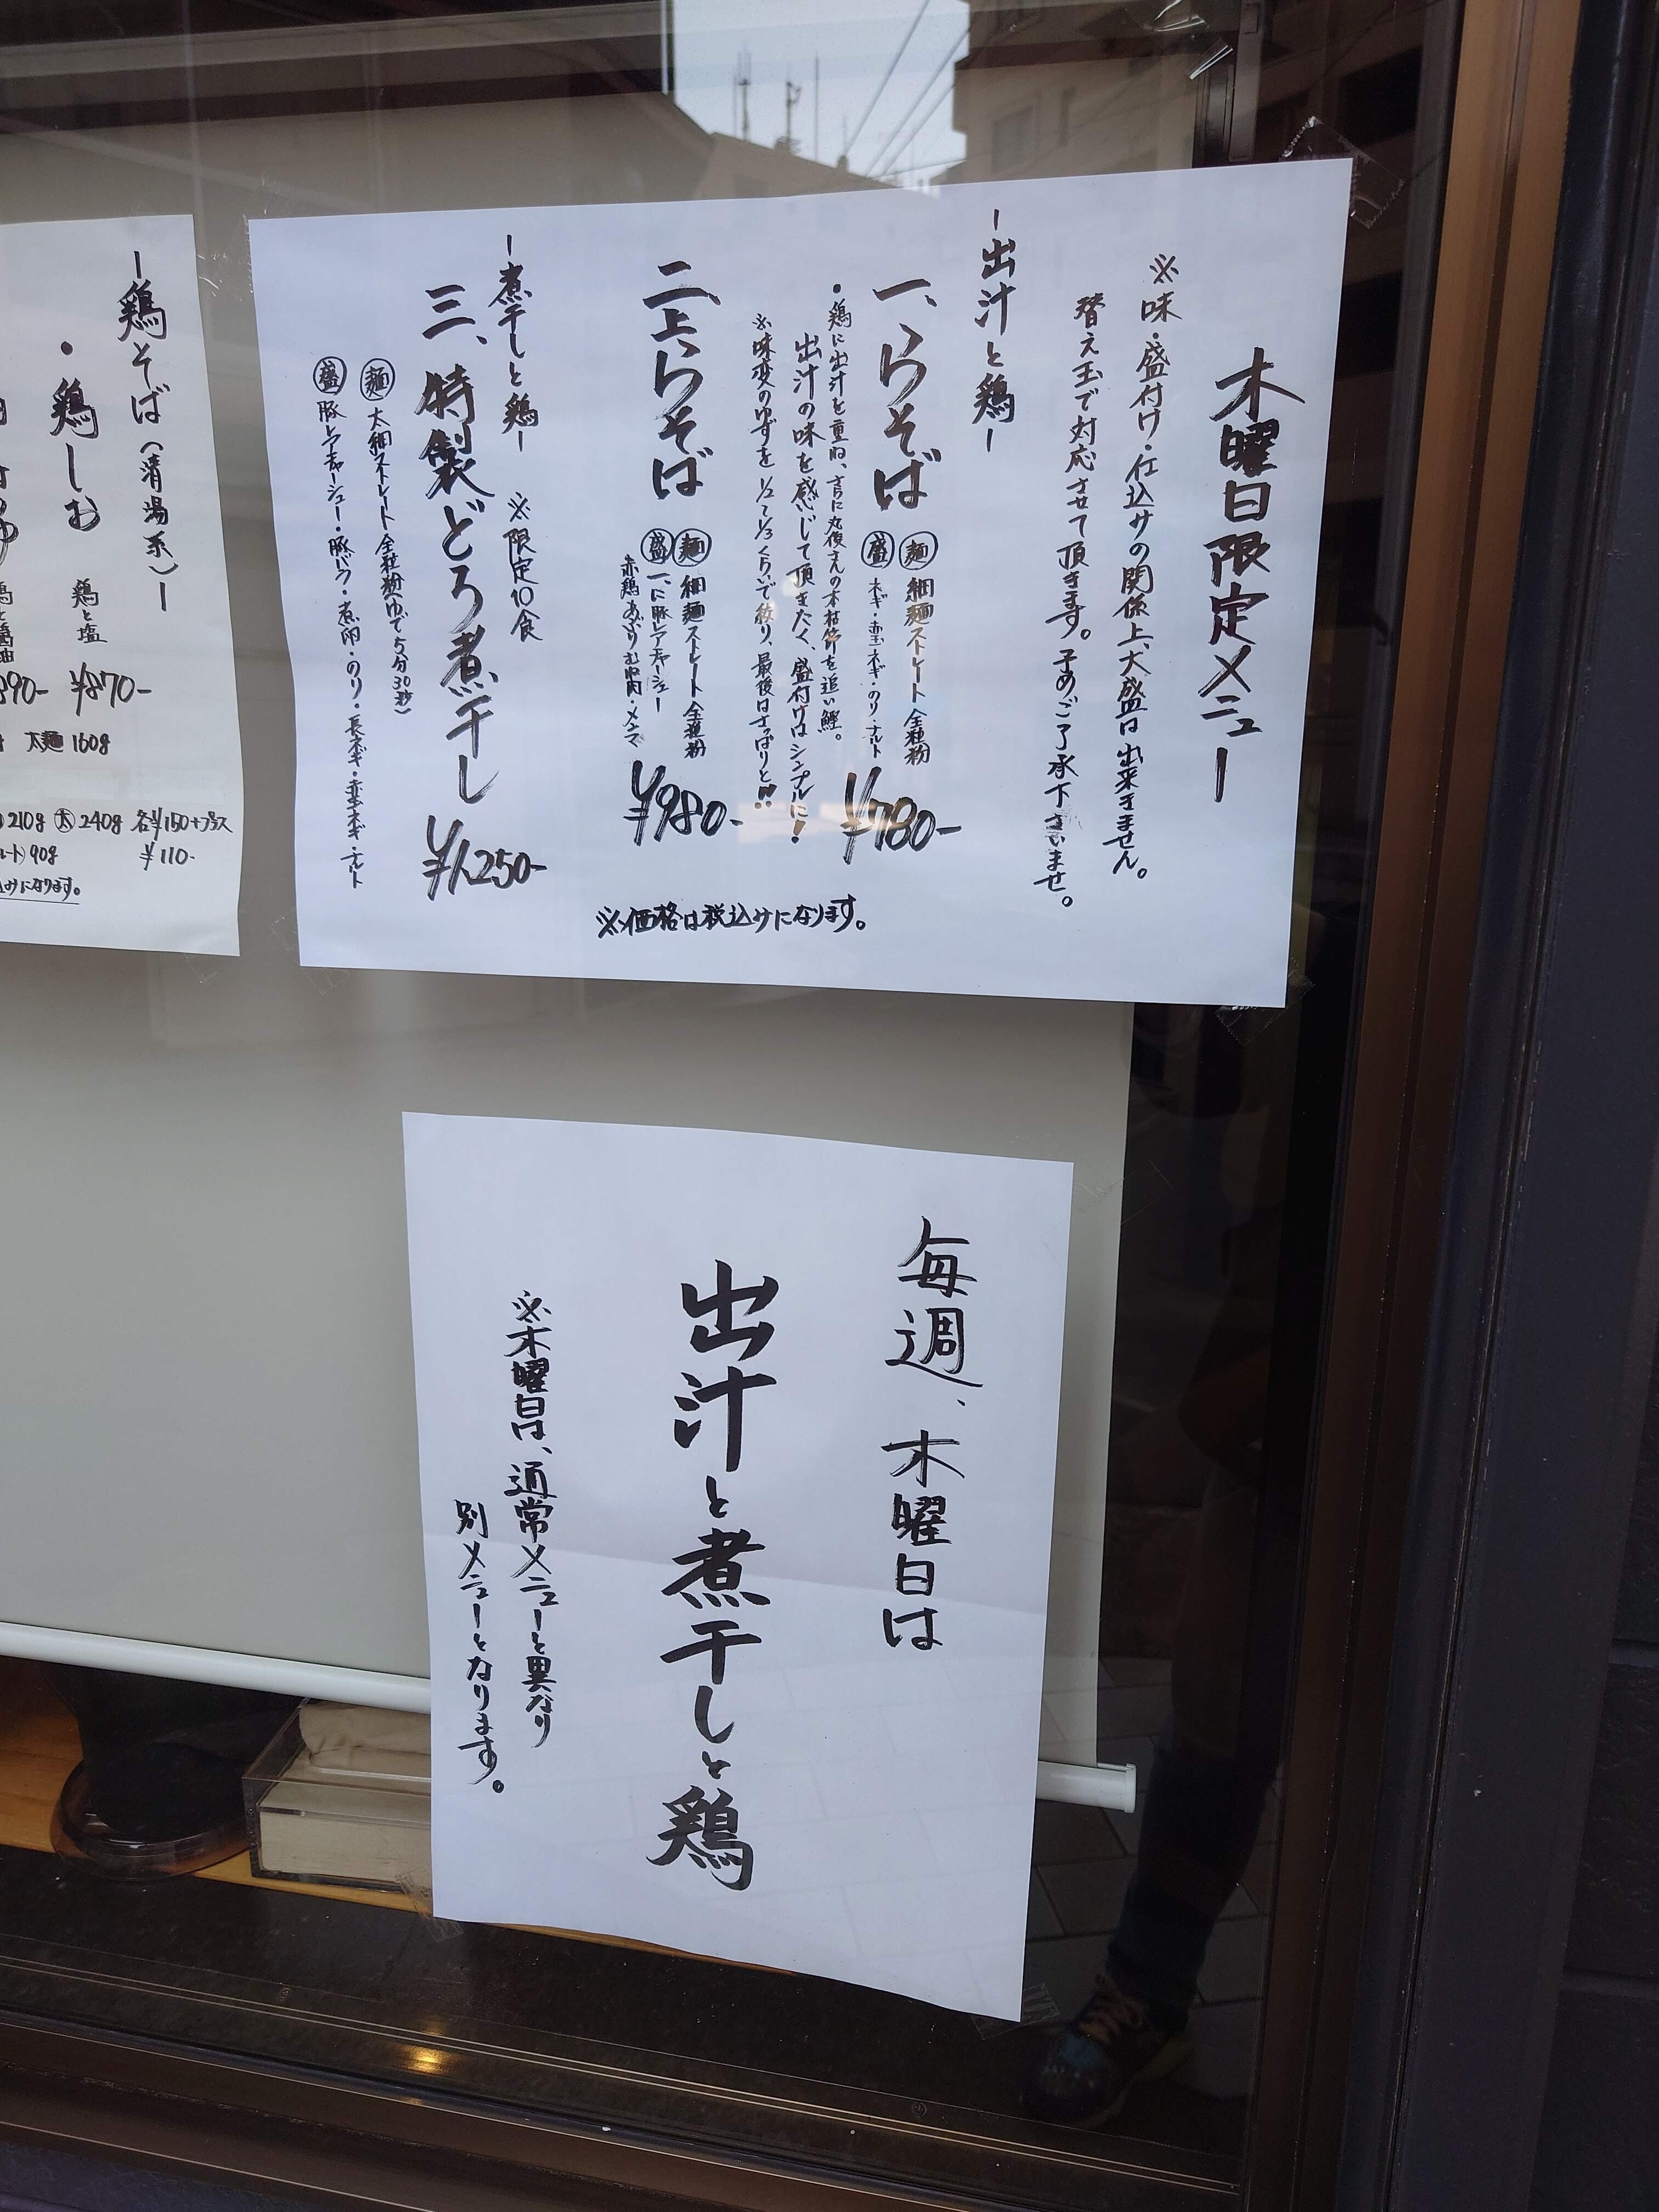 木曜日限定メニュー
※味・盛付け・仕込みの関係上、大盛は出来ません。
替え玉で対応させて頂きます。予めご了承下さいませ。
ー出汁と鶏ー
一、らそば
麺 細麺ストレート全粒粉
盛 ネギ・赤玉ネギ・のり・ナルト
¥780-
・鶏に出汁を重ね、さらに丸俊さんの本枯節を追い鰹。
出汁の味を感じて頂きたく、盛付けはシンプルに!
※味変のゆずを1/2~1/3くらいで絞り、最後はさっぱりと!!
二、上らそば
麺 細麺ストレート全粒粉
盛 一、に豚レアチャーシュー
赤鶏あぶりむね肉・メンマ
¥980-
ー煮干しと鶏ー ※限定10食
三、特製どろ煮干し
¥1,250-
麺 太細ストレート全粒粉(ゆで5分30秒)
盛 豚レアチャーシュー・豚バラ・煮卵・のり・長ネギ・赤玉ネギ・ナルト
※価格は税込みになります。
ー鶏そば(清湯系)ー
・鶏しお 鶏と塩 ¥870-
890-
太麺160g
210g 太240g 各¥150+プラス
90g ¥110-
込みになります。
毎週、木曜日は
出汁と煮干しと鶏
※木曜日は、通常メニューと異なり
別メニューとなります。